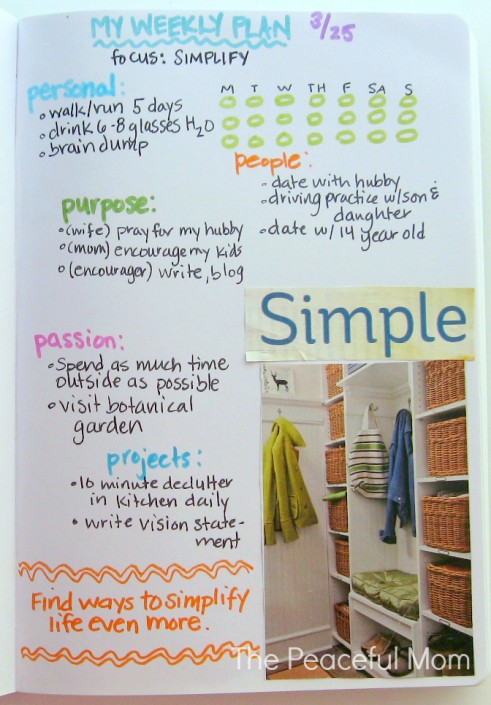 MY WEEKLY PLAN 3/25
focus: SIMPLIFY
personal:
• walk/run 5 days
• drink 6-8 glasses H₂O
• brain dump
M T W TH F SA S
people:
• date with hubby
• driving practice w/son &
daughter
• date w/ 14 year old
purpose:
• (wife) pray for my hubby
• (mom) encourage my kids
• (encourager) write, blog
Simple
passion:
• Spend as much time
outside as possible
• visit botanical
garden
projects:
• 10 minute declutter
in kitchen daily
• write vision state-
ment
Find ways to simplify
life even more.
The Peaceful Mom